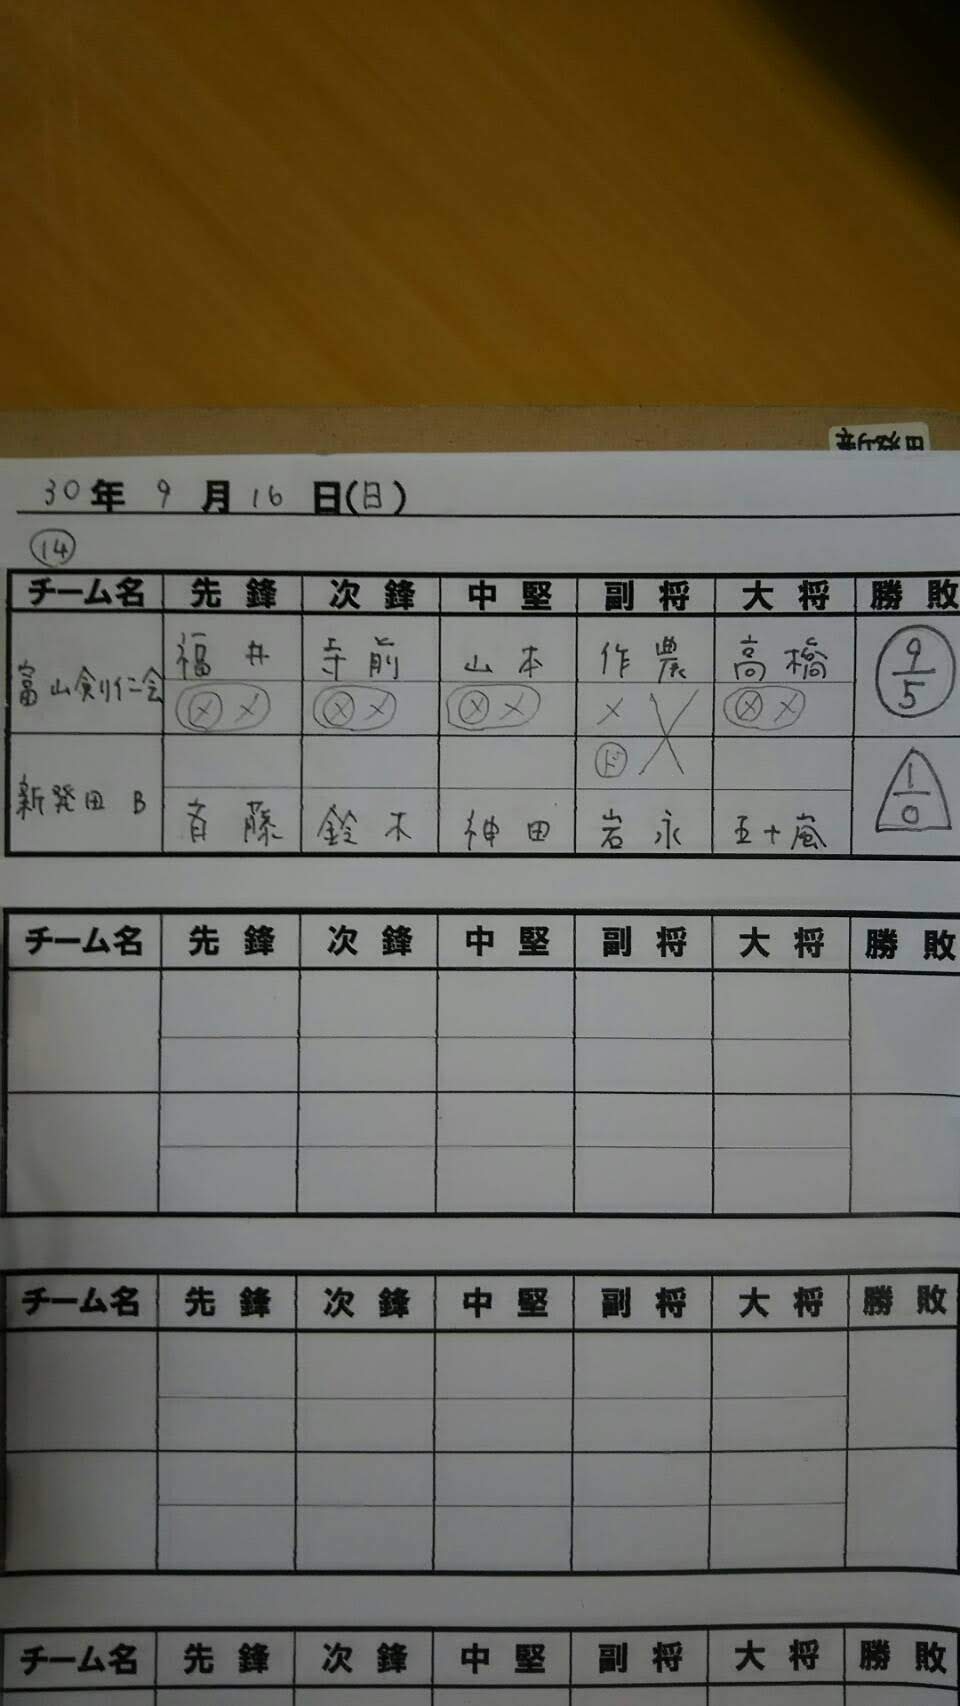 新発田
30年 9月 16日(日)
⑭
チーム名 先鋒 次鋒 中堅 副将 大将 勝敗
富山剣仁会 福井 寺前 山本 作農 高橋 9/5
ⓧメ ⓧメ ⓧメ メ ⓧメ
新発田 B ド 1/0
斉藤 鈴木 神田 岩永 五十嵐
チーム名 先鋒 次鋒 中堅 副将 大将 勝敗
チーム名 先鋒 次鋒 中堅 副将 大将 勝敗
チーム名 先鋒 次鋒 中堅 副将 大将 勝敗